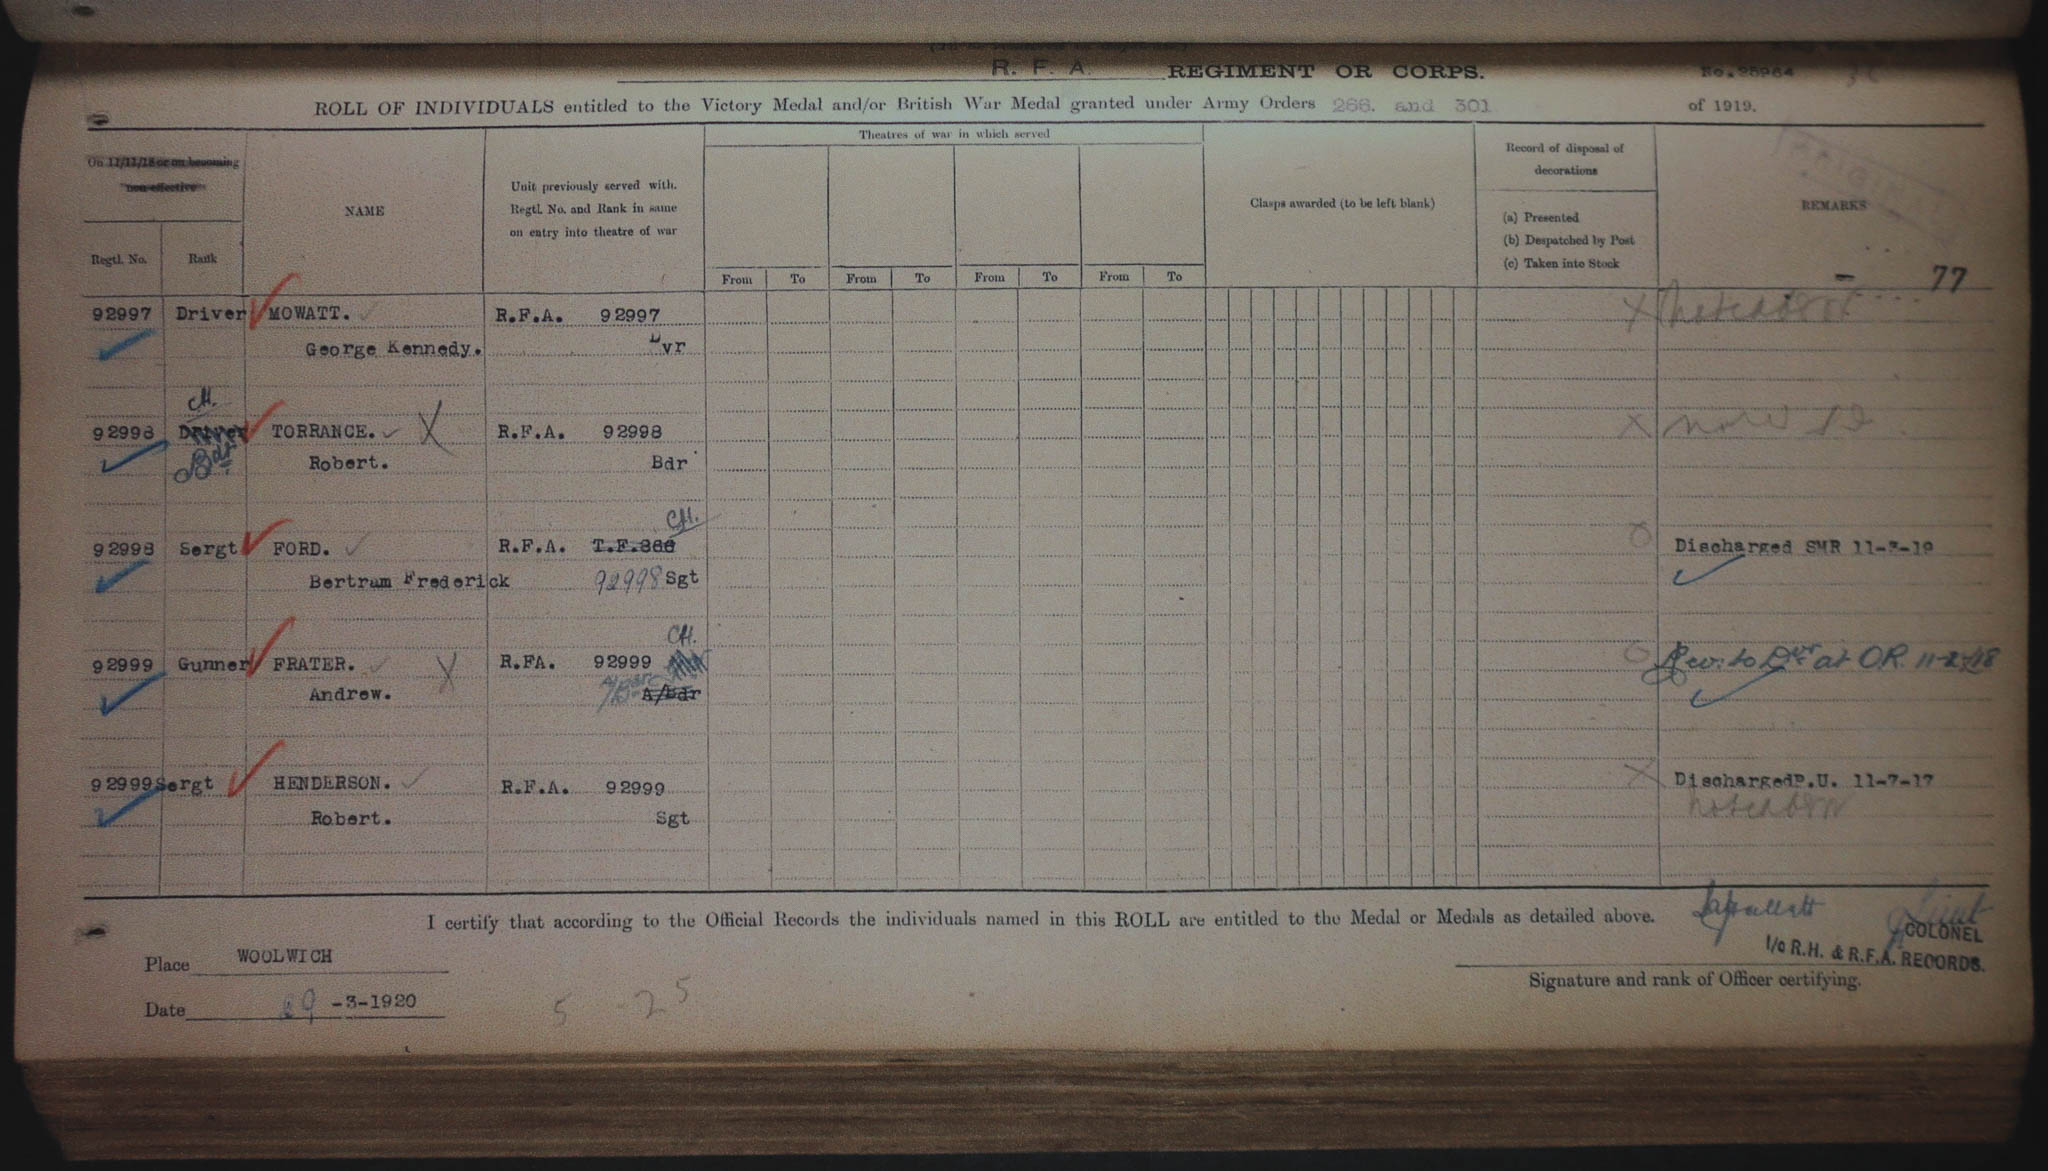 R. F. A. REGIMENT OR CORPS. No. 25964
ROLL OF INDIVIDUALS entitled to the Victory Medal and/or British War Medal granted under Army Orders 266. and 301 of 1919.
On 11/11/18 or on becoming
non-effective
Regtl. No.
Rank
NAME
Unit previously served with.
Regtl. No. and Rank in same
on entry into theatre of war
Theatres of war in which served
From To From To From To From To
Clasps awarded (to be left blank)
Record of disposal of
decorations
(a) Presented
(b) Despatched by Post
(c) Taken into Stock
REMARKS
77
92997 Driver MOWATT. R.F.A. 92997
George Kennedy. Dvr
CH.
92998 Driver TORRANCE. X R.F.A. 92998 X
Bdr Robert. Bdr
CH.
92998 Sergt FORD. R.F.A. T.F.366 Discharged SMR
Bertram Frederick 92998 Sgt
CH.
92999 Gunner FRATER. X R.FA. 92999 Rev. to Dvr at O.R.
Andrew. A/Bdr
92999 Sergt HENDERSON. R.F.A. 92999 X Discharged P.U. 11-7-17
Robert. Sgt
I certify that according to the Official Records the individuals named in this ROLL are entitled to the Medal or Medals as detailed above.
Lieut
COLONEL
I/c R.H. & R.F.A. RECORDS.
Signature and rank of Officer certifying.
Place WOOLWICH
Date -3-1920
5 25